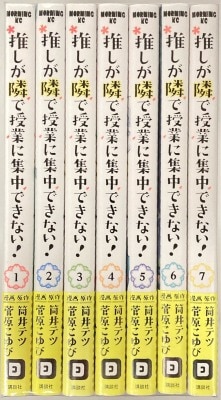 MORNING KC
推しが隣で授業に集中できない!
原作 筒井テツ
漫画 菅原こゆび
講談社
MORNING KC
推しが隣で授業に集中できない!
2
原作 筒井テツ
漫画 菅原こゆび
講談社
MORNING KC
推しが隣で授業に集中できない!
3
原作 筒井テツ
漫画 菅原こゆび
講談社
MORNING KC
推しが隣で授業に集中できない!
4
原作 筒井テツ
漫画 菅原こゆび
講談社
MORNING KC
推しが隣で授業に集中できない!
5
原作 筒井テツ
漫画 菅原こゆび
講談社
MORNING KC
推しが隣で授業に集中できない!
6
原作 筒井テツ
漫画 菅原こゆび
講談社
MORNING KC
推しが隣で授業に集中できない!
7
原作 筒井テツ
漫画 菅原こゆび
講談社